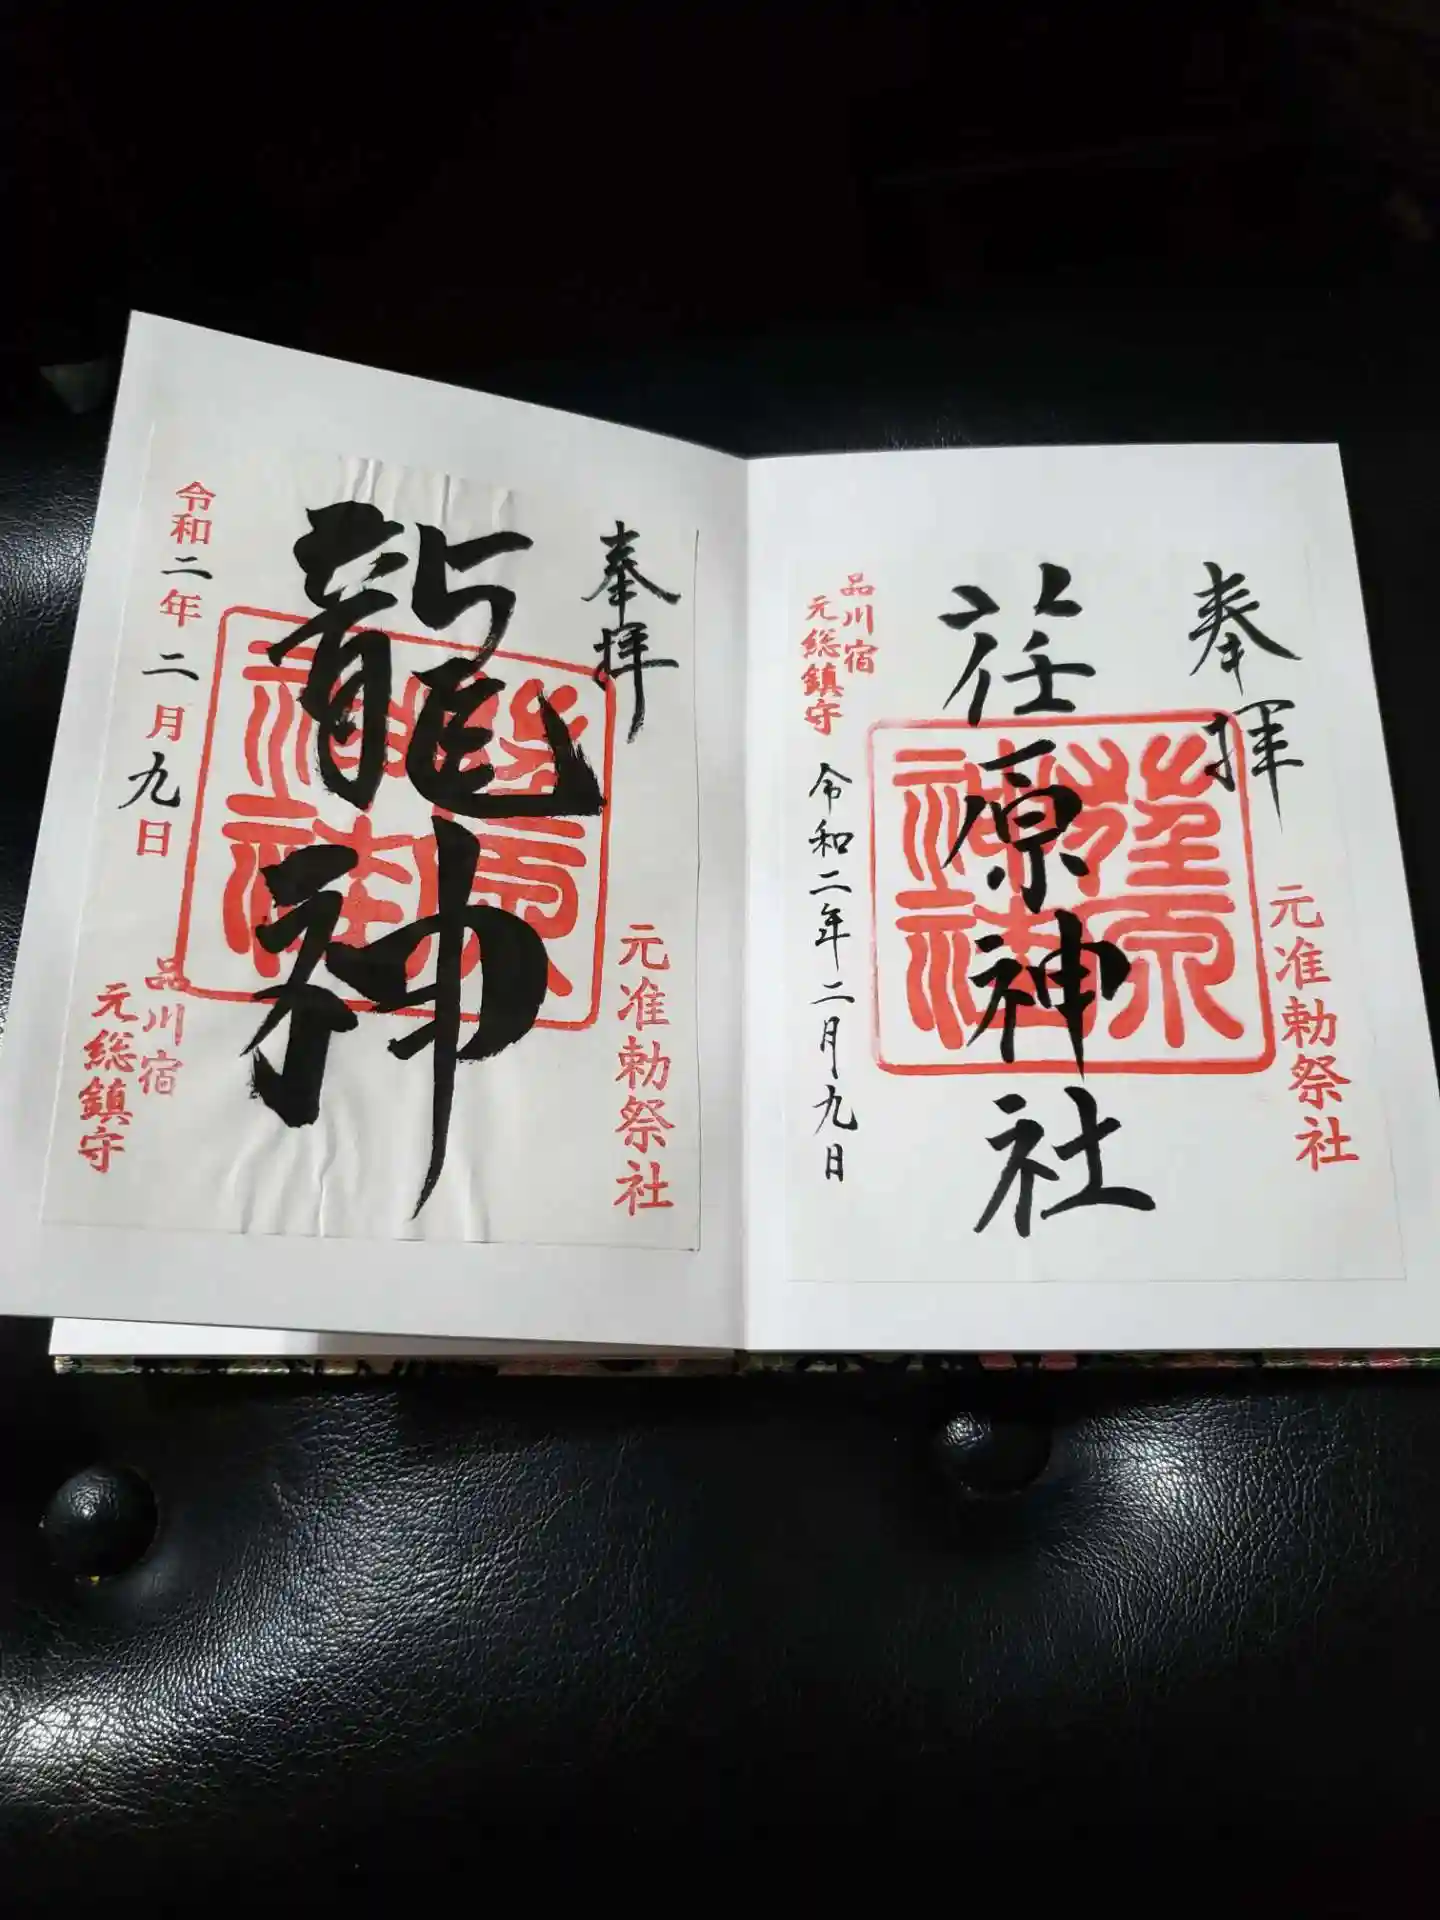 奉拝
元准勅祭社
荏原神社
荏原神社
品川宿
元総鎮守
令和二年二月九日
奉拝
元准勅祭社
龍神
荏原神社
令和二年二月九日
品川宿
元総鎮守